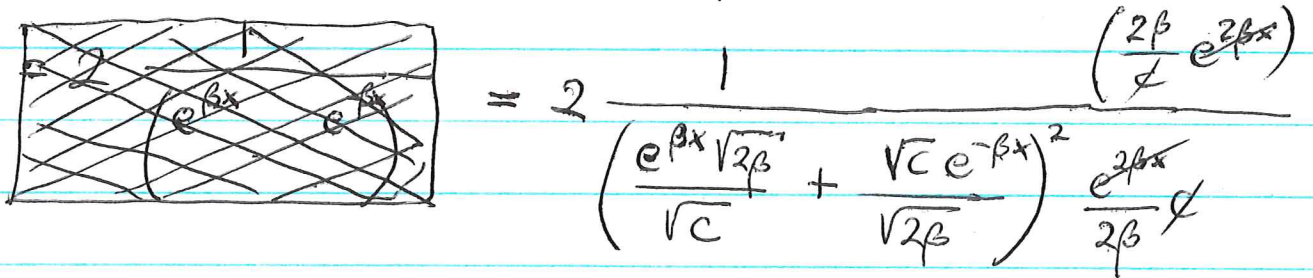 = 2 \frac{1 \left( \frac{2\beta}{\cancel{c}} \cancel{e^{2\beta x}} \right)}{\left( \frac{e^{\beta x} \sqrt{2\beta}}{\sqrt{c}} + \frac{\sqrt{c} e^{-\beta x}}{\sqrt{2\beta}} \right)^2 \frac{\cancel{e^{2\beta x}}}{2\beta} \cancel{c}}